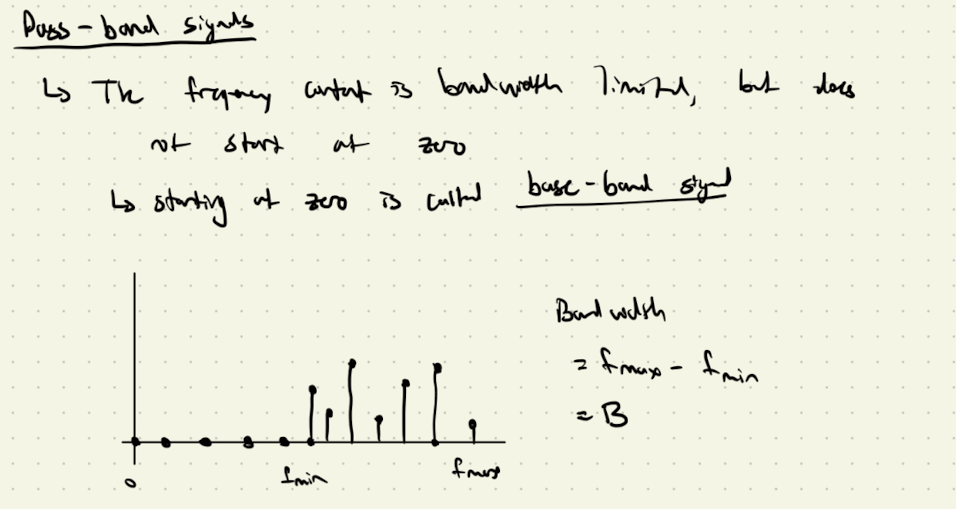 Pass-band signals
↳ The frequency content is bandwidth limited, but does
not start at zero
↳ starting at zero is called base-band signal
Bandwidth
= fmax - fmin
= B
0 fmin fmax